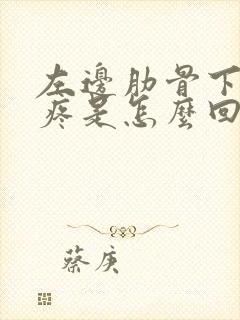 左邊肋骨下
疼是怎麼回
蔡庚